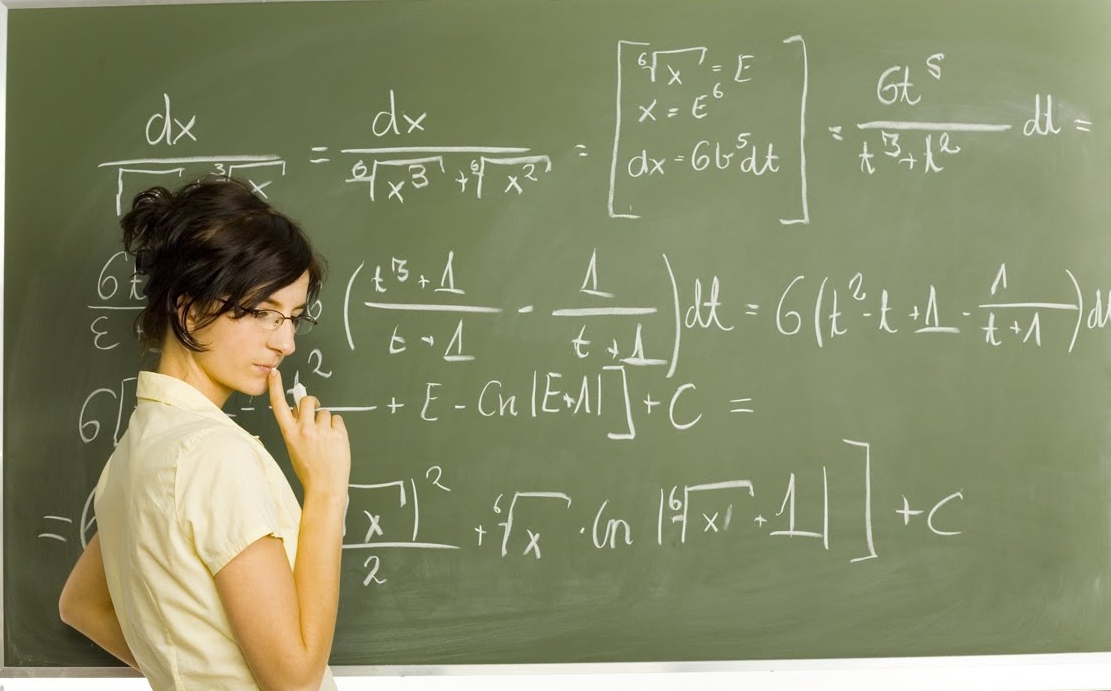 dx / √ ∛x = dx / ⁶√x³ + ⁶√x² = [ ⁶√x = E
x = E⁶
dx = 6t⁵dt ] = 6t⁵ / t³ + t² dt =
6t / ε ( t³ + 1 / t + 1 - 1 / t + 1 ) dt = 6 ( t² - t + 1 - 1 / t + 1 ) d
6[ - ² + E - ln |E + 1| ] + C =
= ( x )² / 2 + ⁶√x · ln | ⁶√x + 1 | ] + C